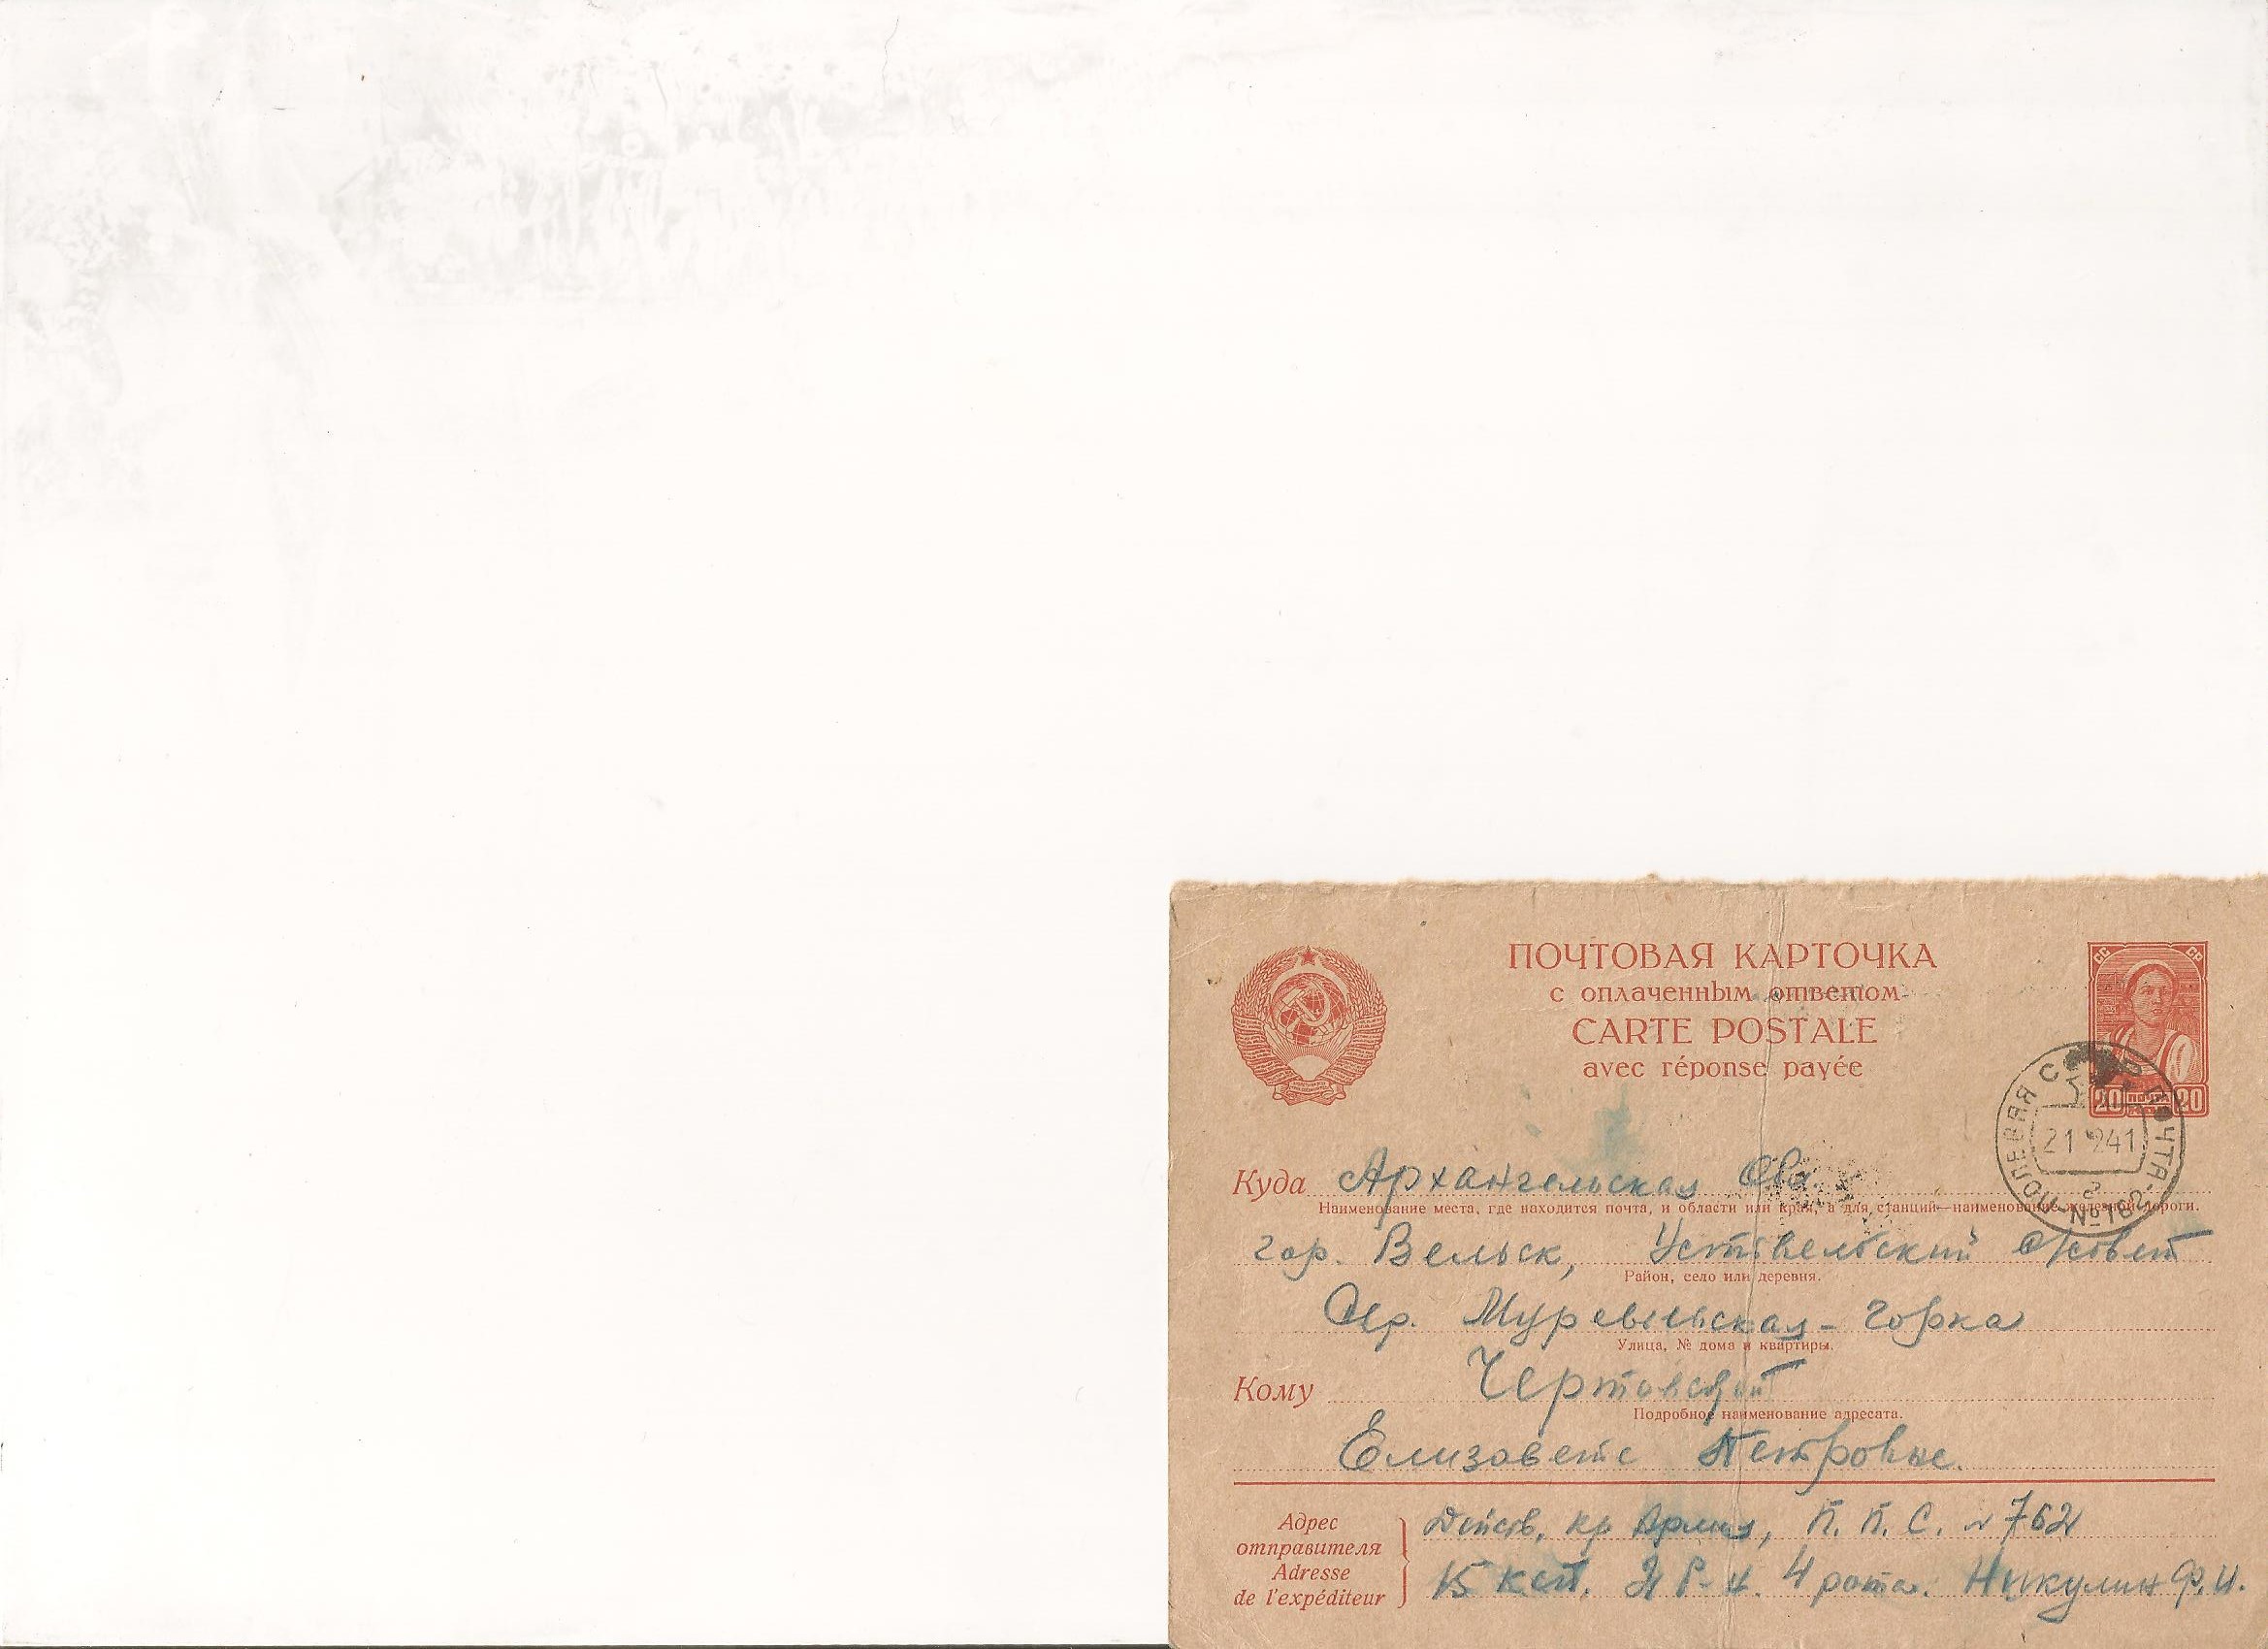 ПОЧТОВАЯ КАРТОЧКА
с оплаченным ответом
CARTE POSTALE
avec réponse payée
СС СС
20 ПОЧТА 20
ПОЛЕВАЯ ПОЧТА
21 9 41
Куда Архангельская Обл.
Наименование места, где находится почта, и области или края, а для станций—наименование железной дороги.
гор. Вельск, Устьвельский с/совет
Район, село или деревня.
Дер. Муревьевская - горка
Улица, № дома и квартиры.
Кому Чертовской
Подробное наименование адресата.
Елизавете Петровне.
Адрес отправителя
Adresse de l'expéditeur
Действ. кр Армия, П. П. С. № 762
15 4 рота. Никулин Ф. И.